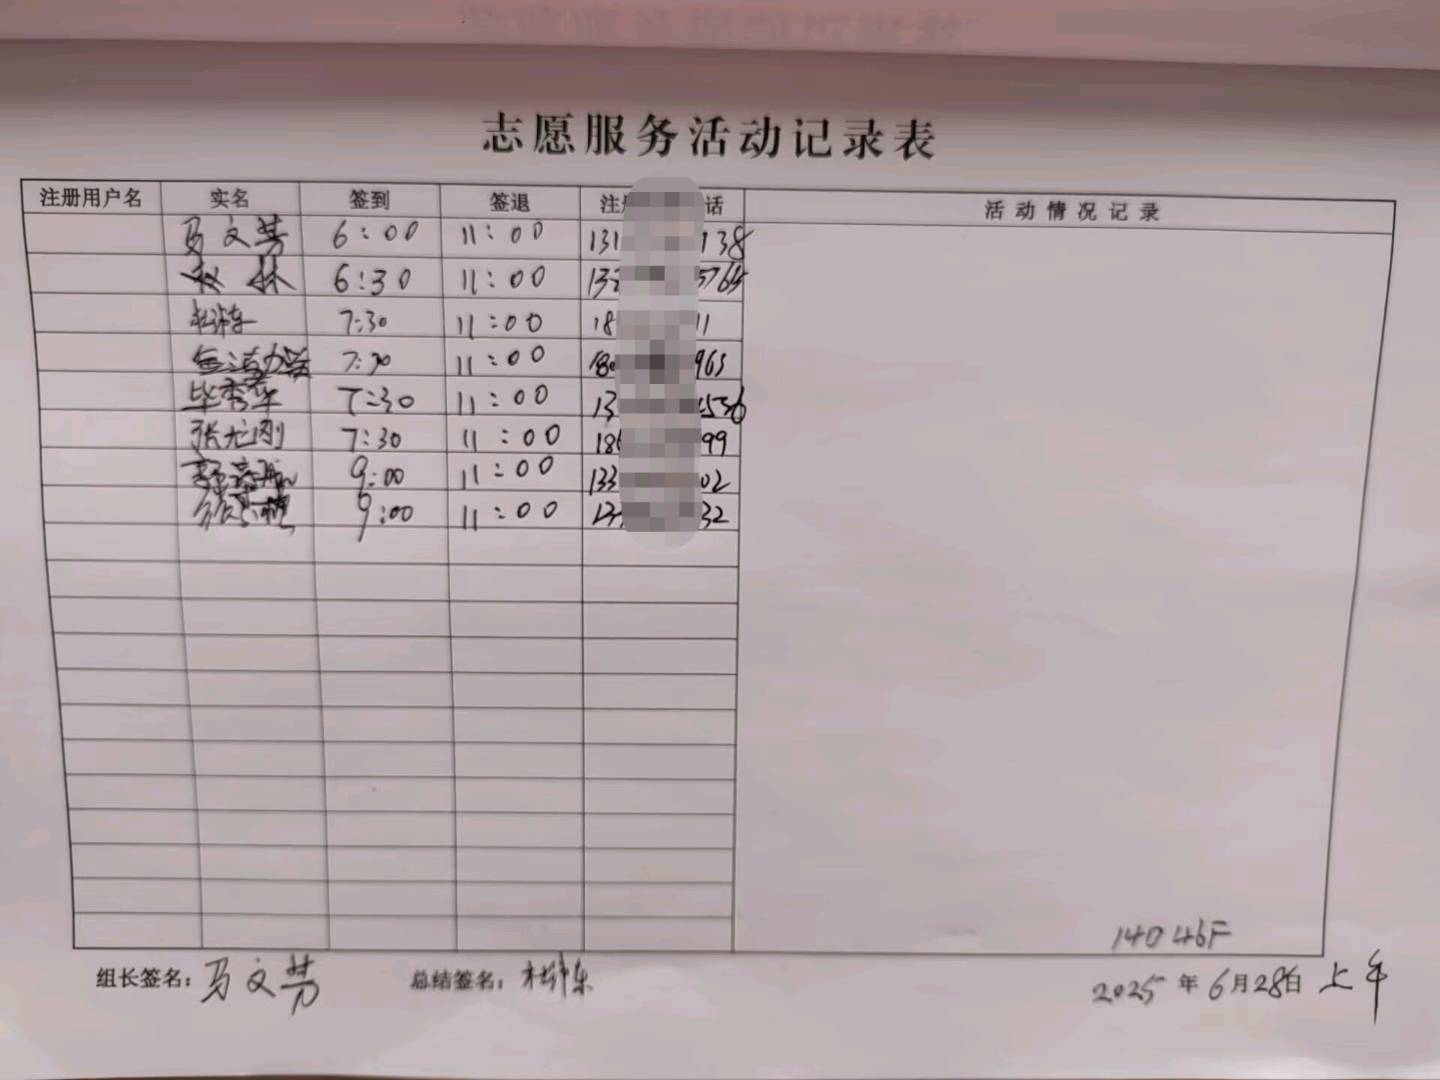 志愿服务活动记录表
注册用户名 实名 签到 签退 注 话 活动情况记录
马文芳 6:00 11:00 131 138
赵林 6:30 11:00 13 5764
7:30 11:00 18 11
7:30 11:00 180 963
毕秀华 7:30 11:00 13 536
张光刚 7:30 11:00 186 99
9:00 11:00 133 02
9:00 11:00 13 32
组长签名: 马文芳 总结签名: 2025年6月28日上午